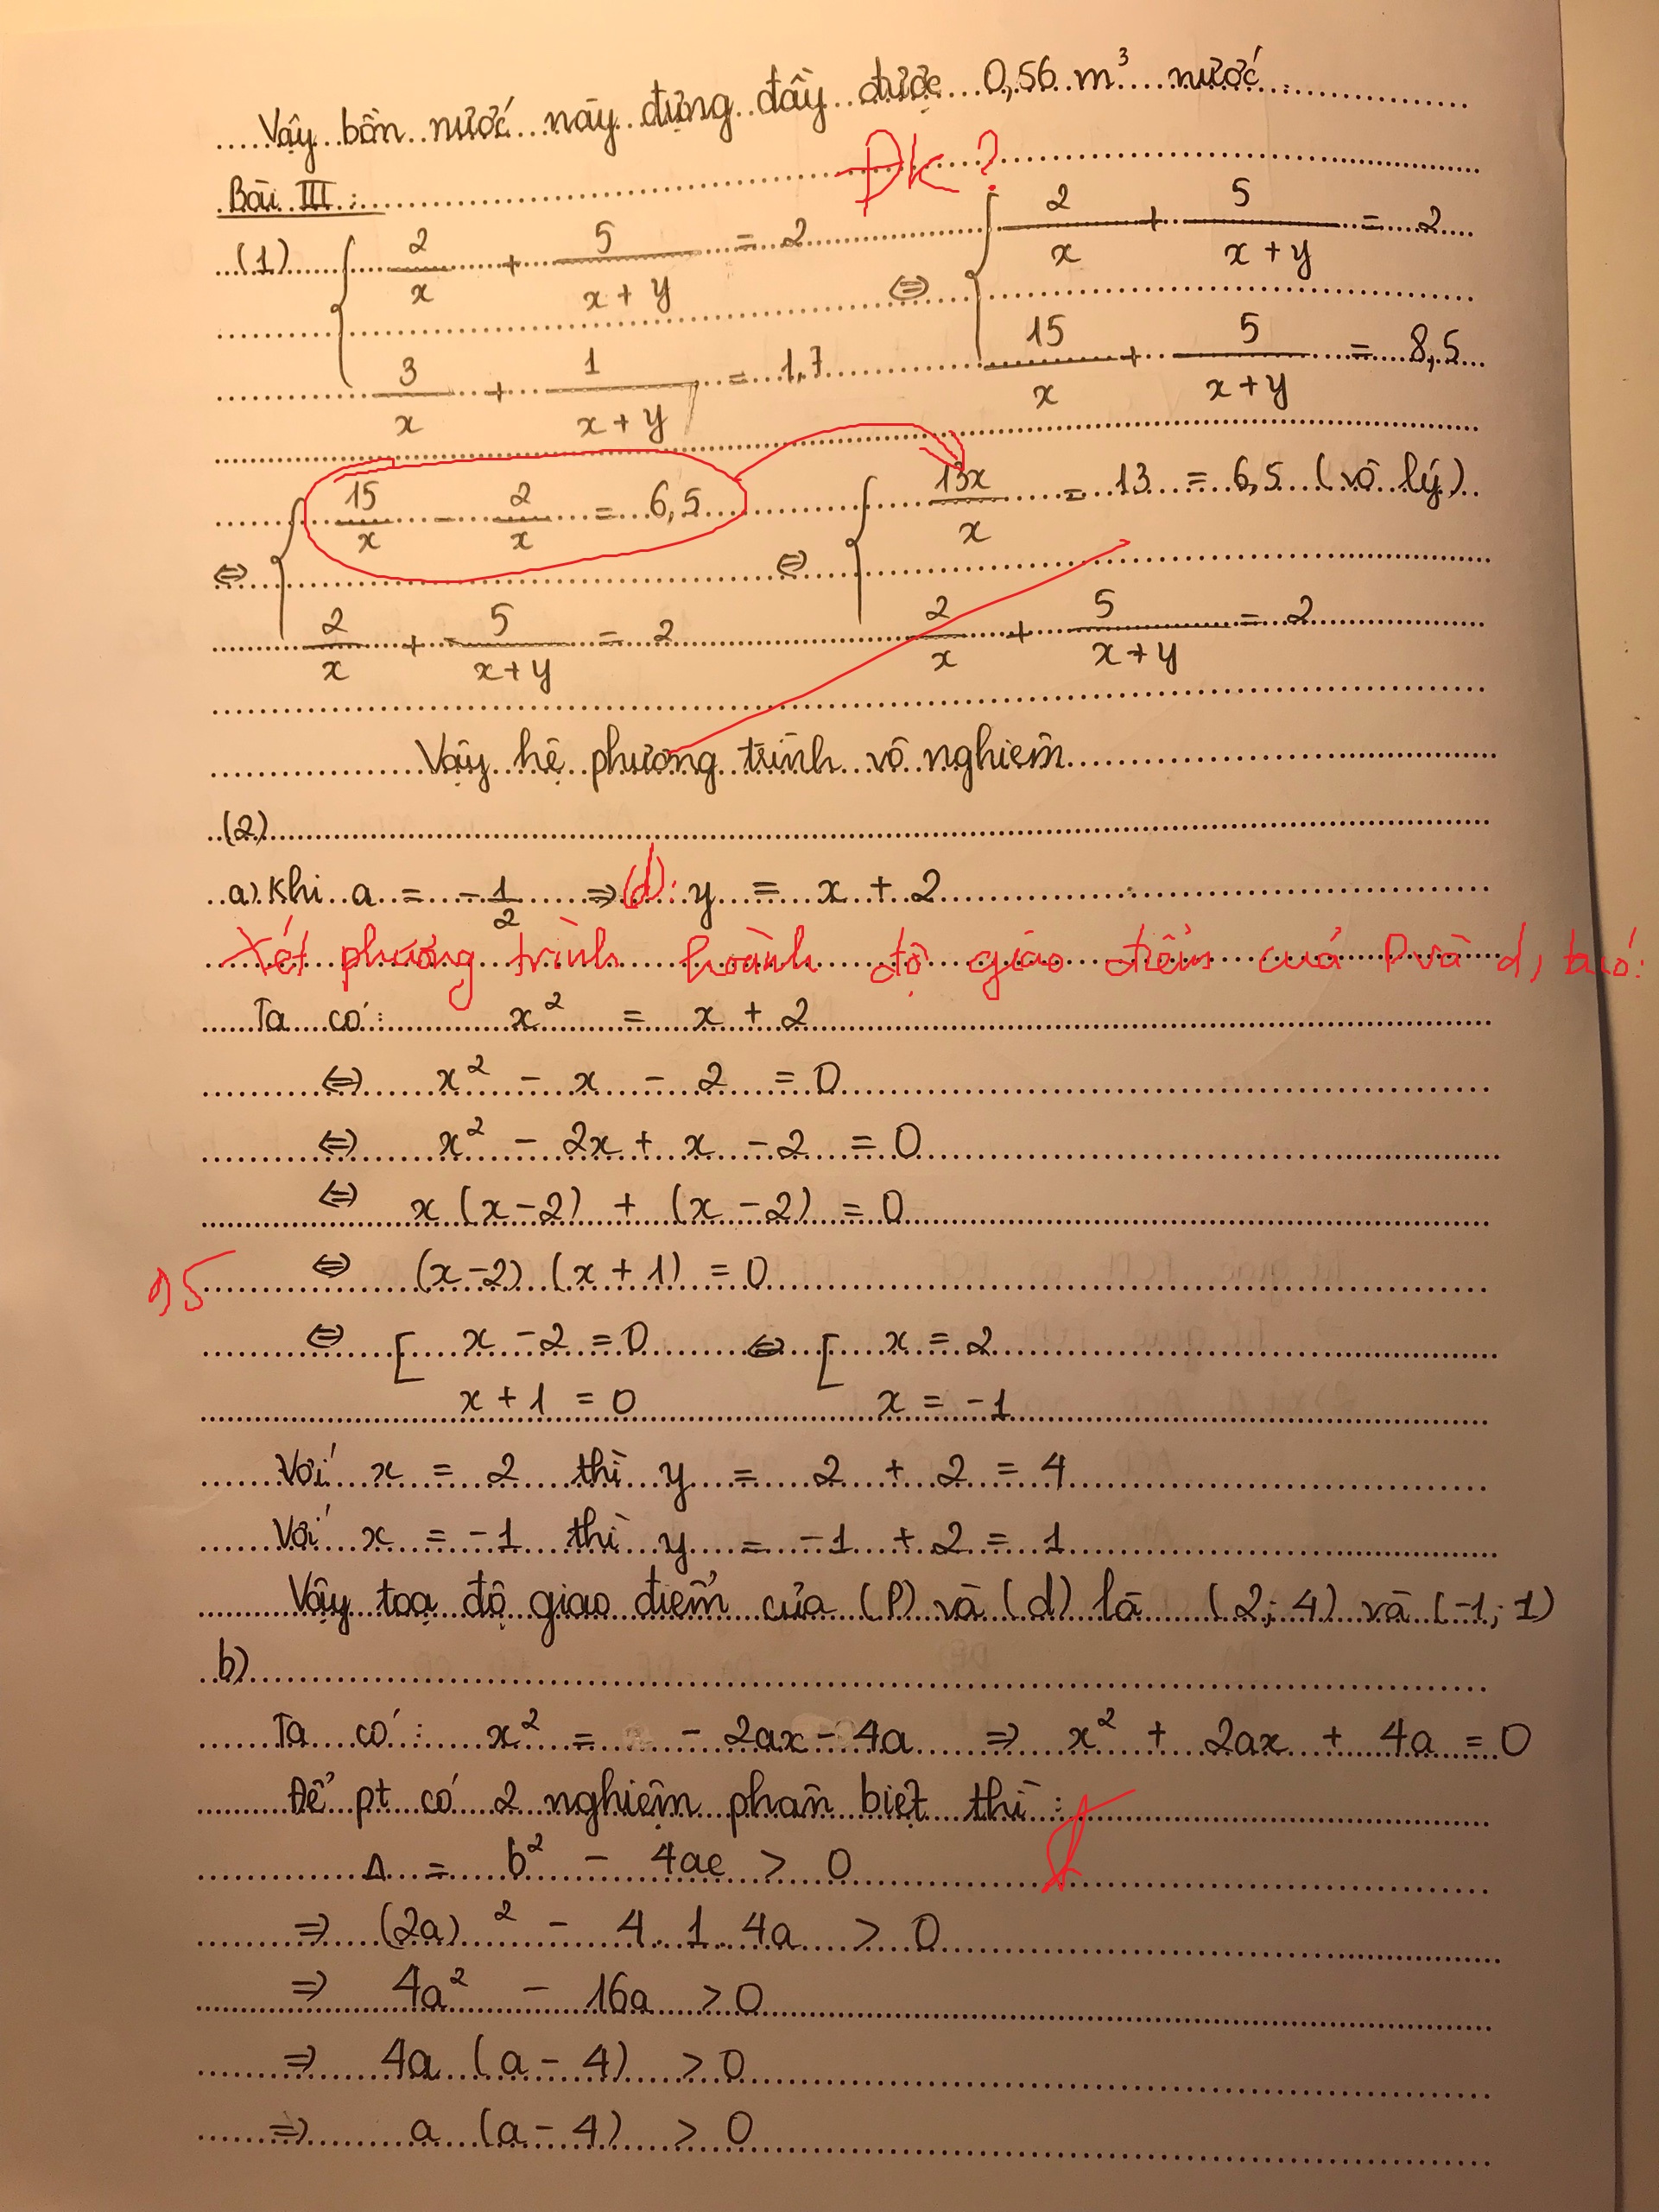 Vậy bồn nước này đựng đầy được 0,56 m³ nước.
ĐK?
Bài III:
(1) { 2/x + 5/(x+y) = 2 ⇔ { 2/x + 5/(x+y) = 2
3/x + 1/(x+y) = 1,7 15/x + 5/(x+y) = 8,5
⇔ { 15/x - 2/x = 6,5 ⇔ { 13x/x = 13 = 6,5 (vô lý)
2/x + 5/(x+y) = 2 2/x + 5/(x+y) = 2
Vậy hệ phương trình vô nghiệm
(2)
a) Khi a = -1/2 ⇒ (d): y = x + 2
Xét phương trình hoành độ giao điểm của P và d, ta có:
Ta có: x² = x + 2
⇔ x² - x - 2 = 0
⇔ x² - 2x + x - 2 = 0
⇔ x(x-2) + (x-2) = 0
⇔ (x-2)(x+1) = 0
⇔ [ x - 2 = 0 ⇔ [ x = 2
x + 1 = 0 x = -1
Với x = 2 thì y = 2 + 2 = 4
Với x = -1 thì y = -1 + 2 = 1
Vậy toạ độ giao điểm của (P) và (d) là (2; 4) và (-1; 1)
b)
Ta có: x² = - 2ax - 4a ⇒ x² + 2ax + 4a = 0
Để pt có 2 nghiệm phân biệt thì:
Δ = b² - 4ac > 0
⇒ (2a)² - 4.1.4a > 0
⇒ 4a² - 16a > 0
⇒ 4a (a - 4) > 0
⇒ a (a - 4) > 0